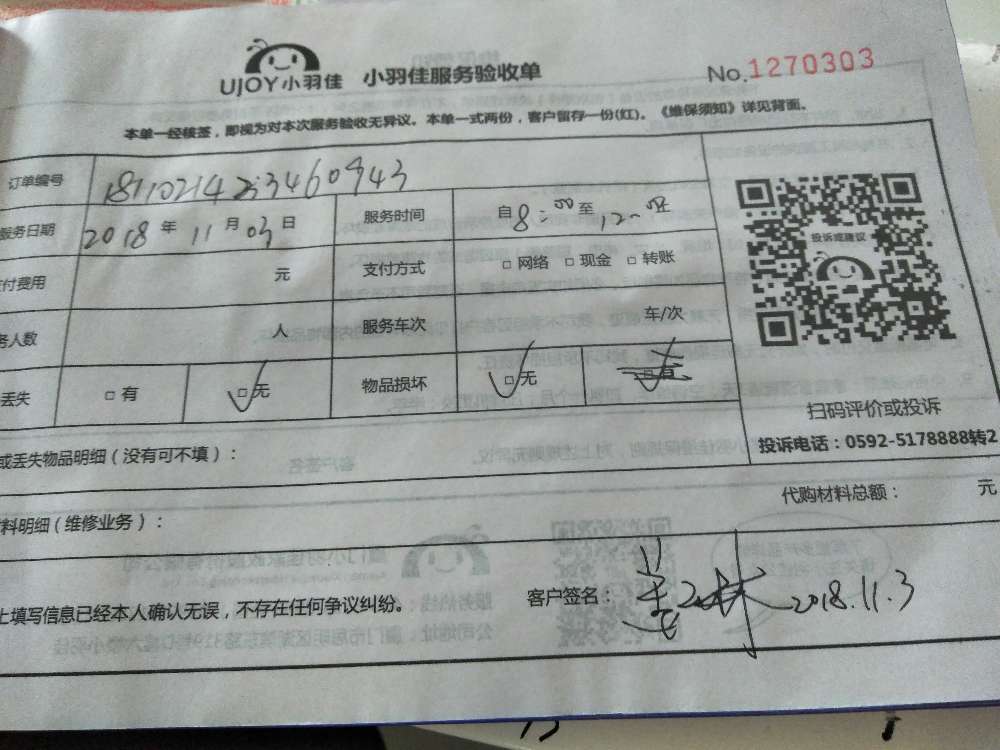 UJOY小羽佳 小羽佳服务验收单 No.1270303
本单一经核签，即视为对本次服务验收无异议。本单一式两份，客户留存一份(红)。《维保须知》详见背面。
订单编号
服务日期 2018年11月03日 服务时间 自8:00至12:00
付费用 元 支付方式 □网络 □现金 □转账
务人数 人 服务车次 车/次
丢失 □有 □无 物品损坏 □无 □有
投诉或建议
扫码评价或投诉
投诉电话：0592-5178888转2
或丢失物品明细（没有可不填）：
代购材料总额： 元
料明细（维修业务）：
上填写信息已经本人确认无误，不存在任何争议纠纷。 客户签名： 2018.11.3